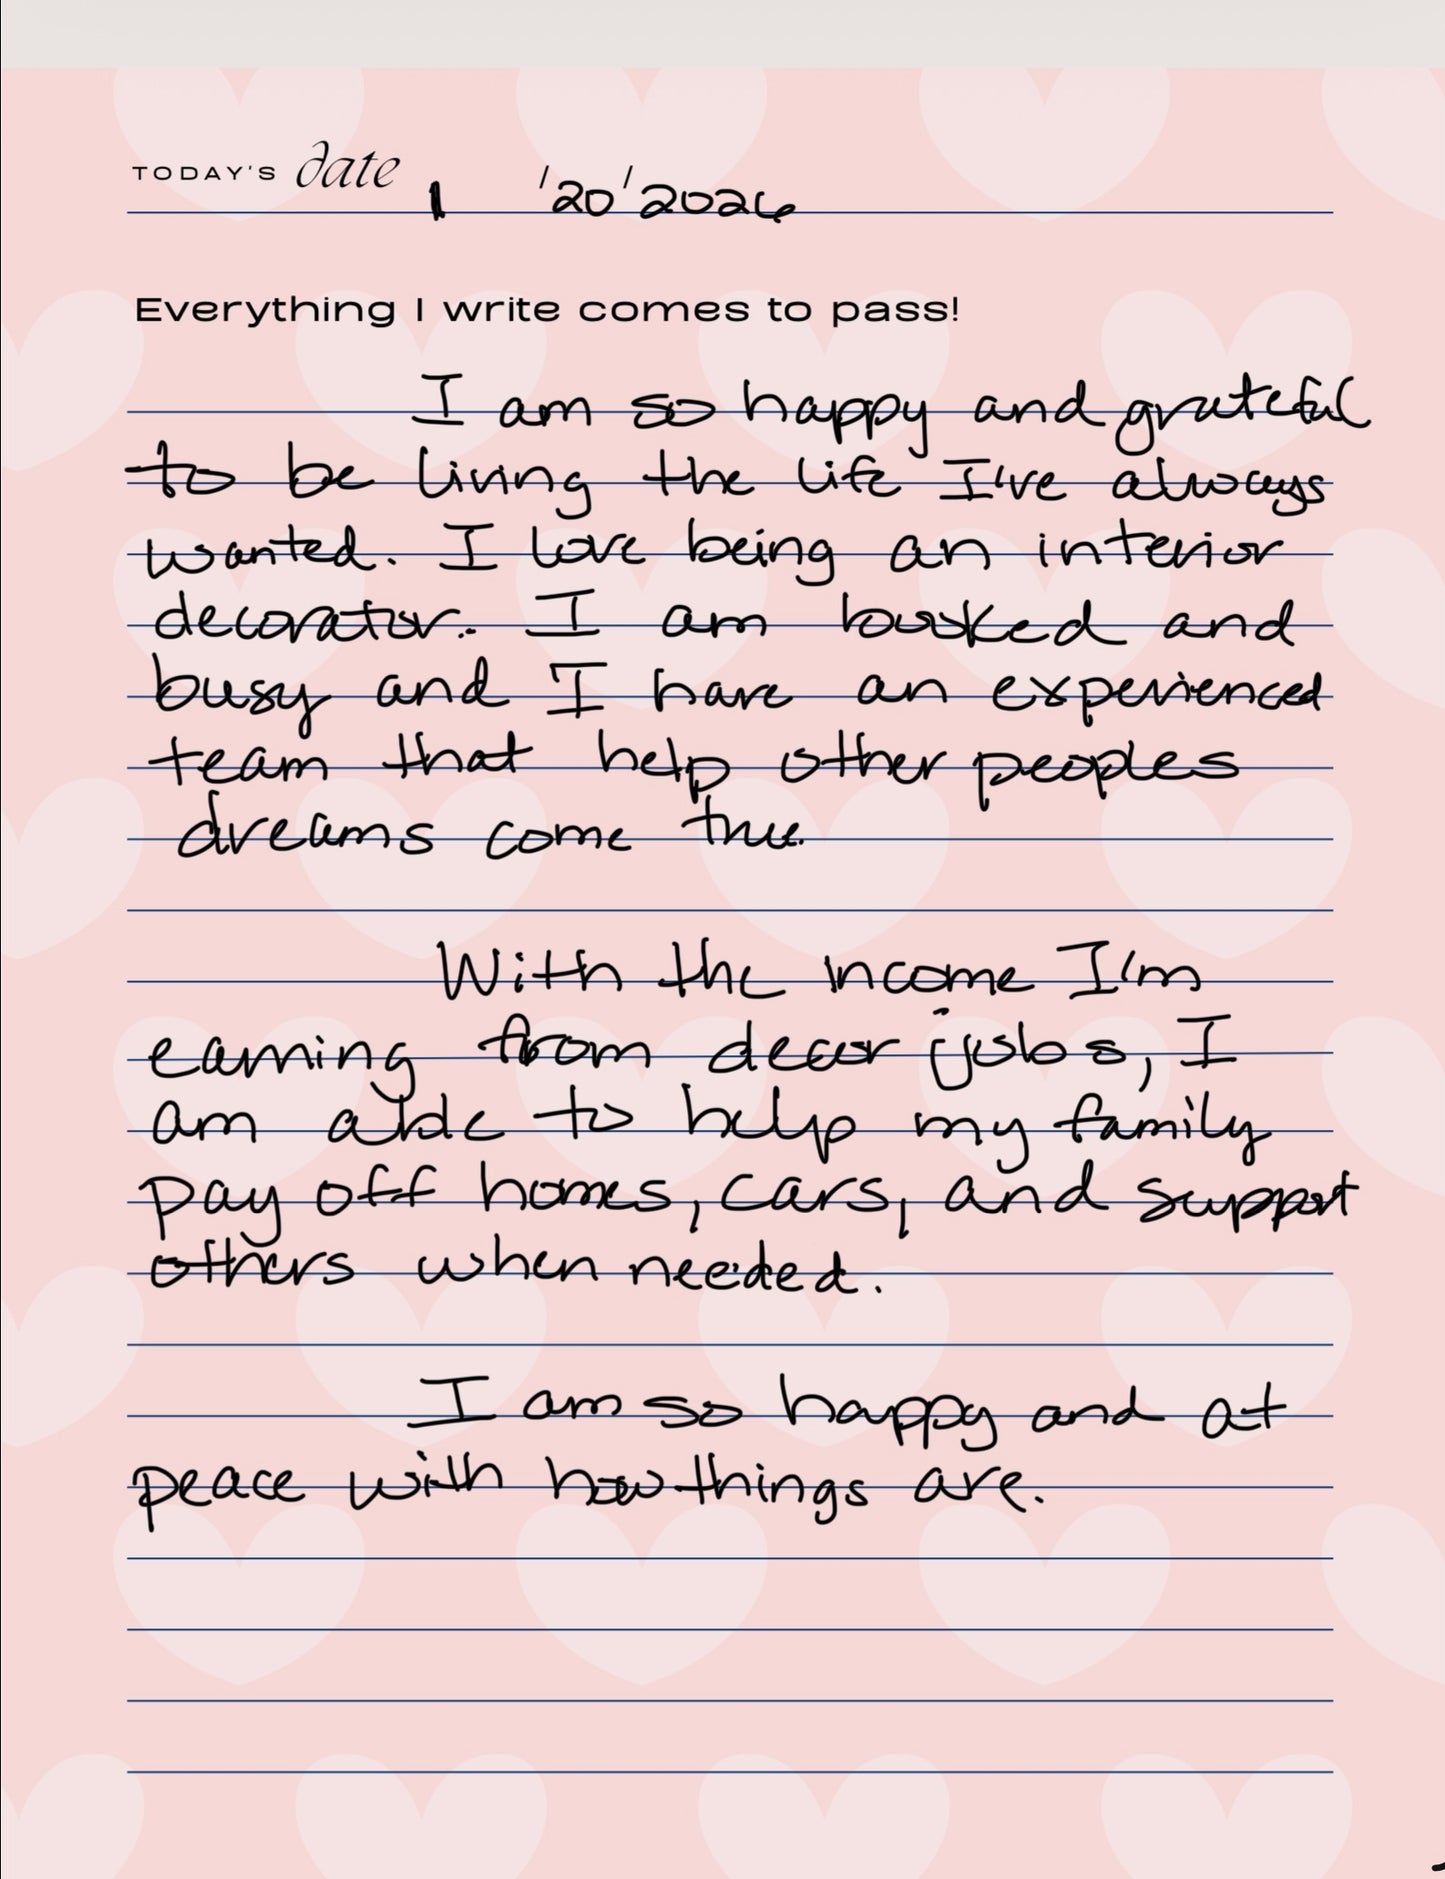 TODAY'S date 1/20/2026
Everything I write comes to pass!
I am so happy and grateful
to be living the life I've always
wanted. I love being an interior
decorator. I am booked and
busy and I have an experienced
team that help other peoples
dreams come true.
With the income I'm
earning from decor jobs, I
am able to help my family
pay off homes, cars, and support
others when needed.
I am so happy and at
peace with how things are.